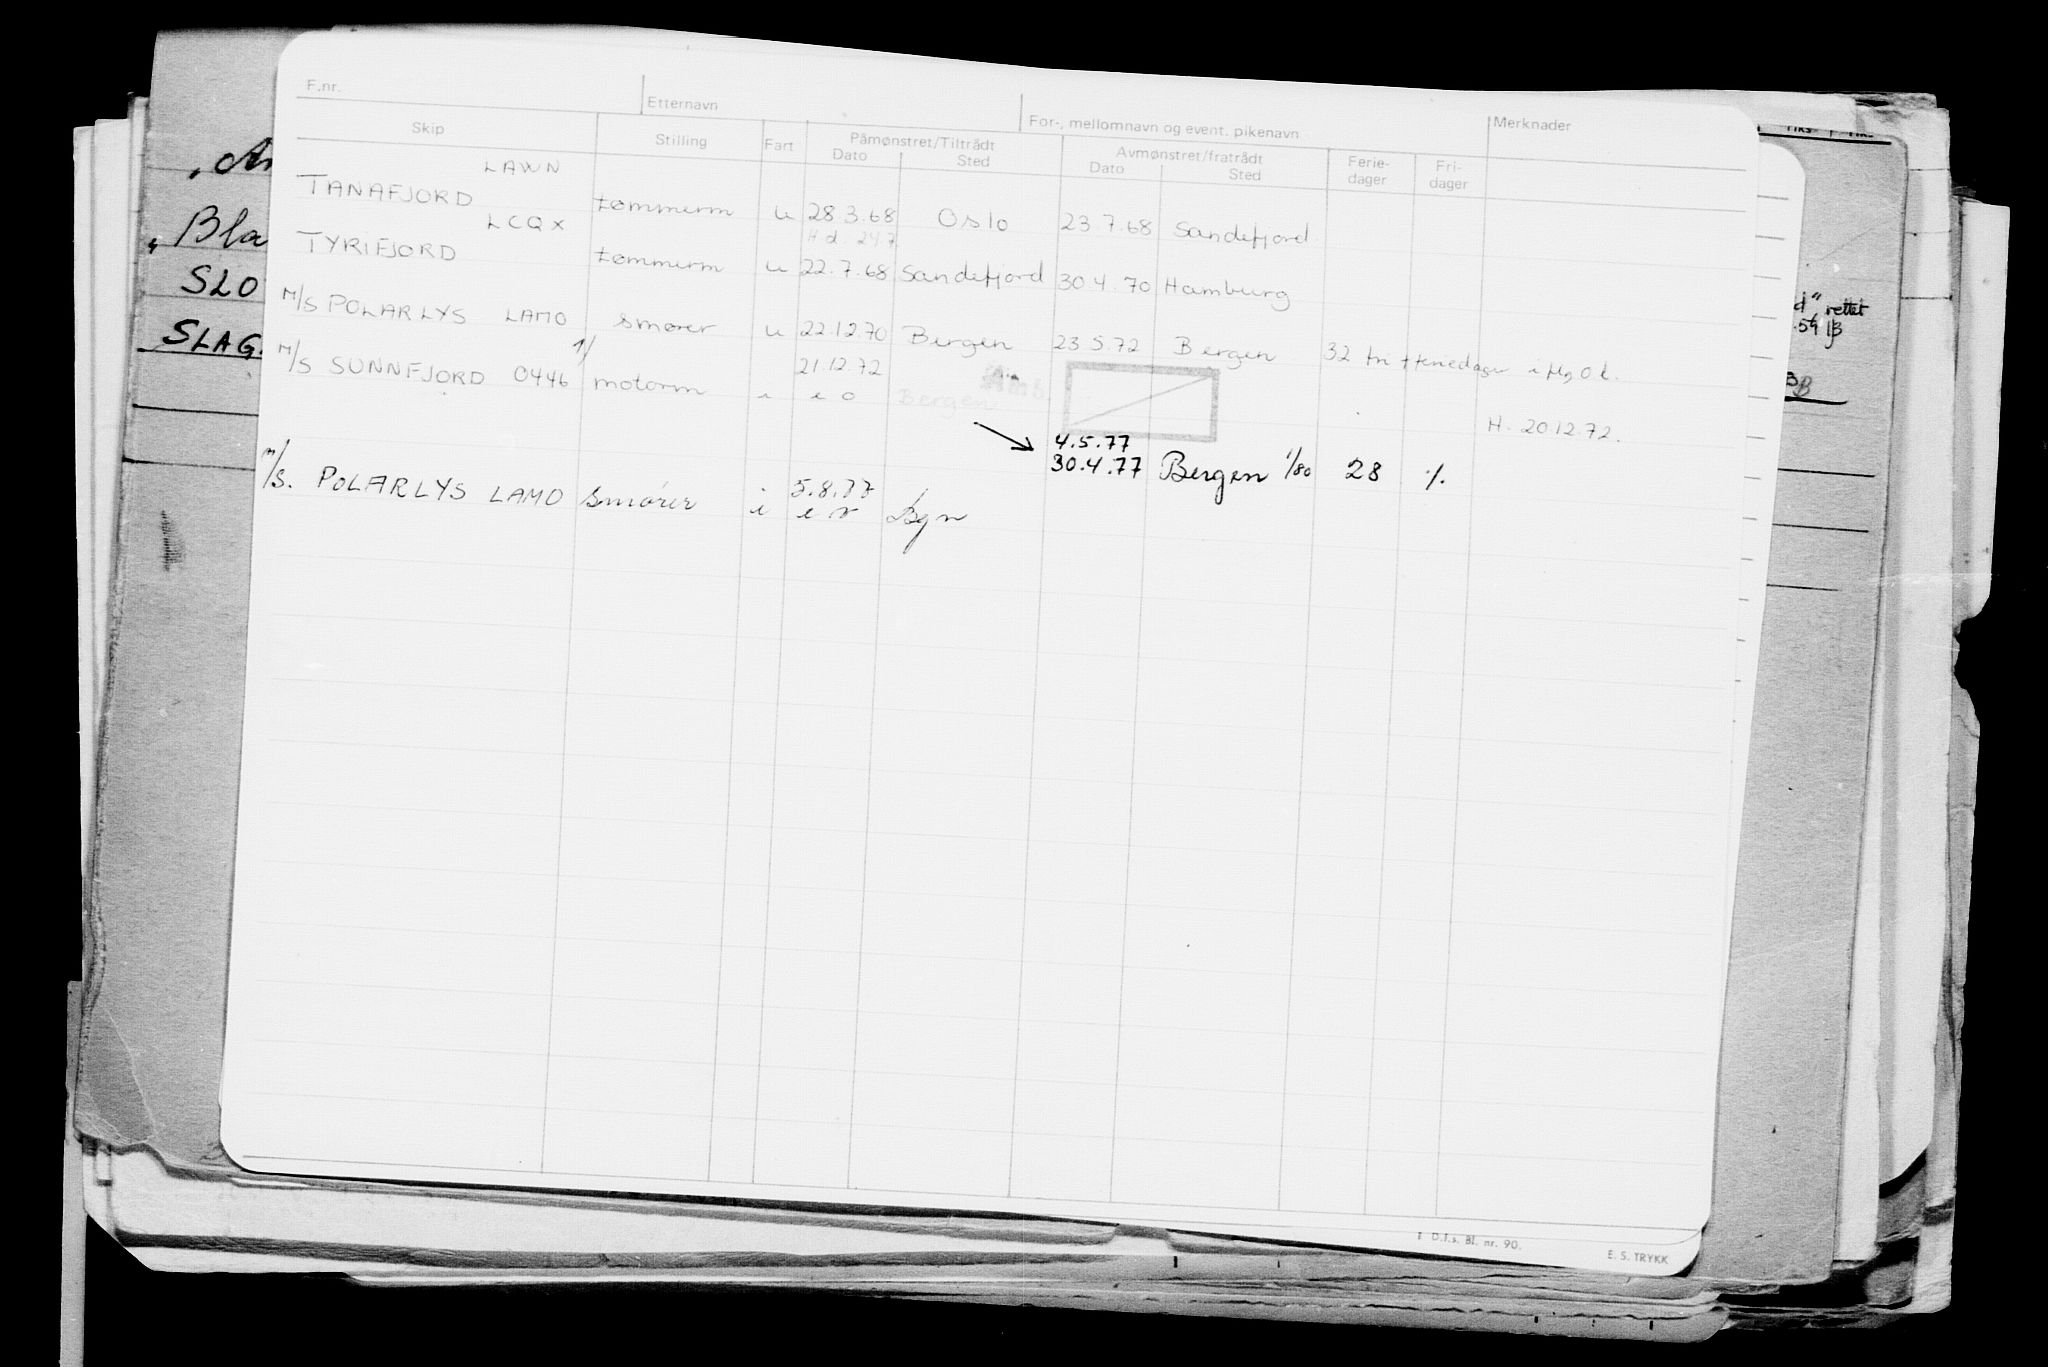 F.nr. Etternavn For-, mellomnavn og event. pikenavn Merknader
Skip Stilling Fart Påmønstret/Tiltrådt Avmønstret/fratrådt Ferie- Fri-
Dato Sted Dato Sted dager dager
LAWN
TANAFJORD tømmerm u 28.3.68 Oslo 23.7.68 Sandefjord
LCQX
TYRIFJORD tømmerm u 22.7.68 Sandefjord 30.4.70 Hamburg
M/S POLARLYS LAMO smører u 22.12.70 Bergen 23.5.72 Bergen 32
21.12.72
M/S SUNNFJORD 0446 motorm Bergen
H. 20.12.72.
4.5.77
30.4.77 Bergen 1/80 28 %
5.8.77
M/S. POLARLYS LAMO smører i Bgn
SLO
SLAG.
rettet
D.f.s. Bl. nr. 90.
E. S. TRYKK